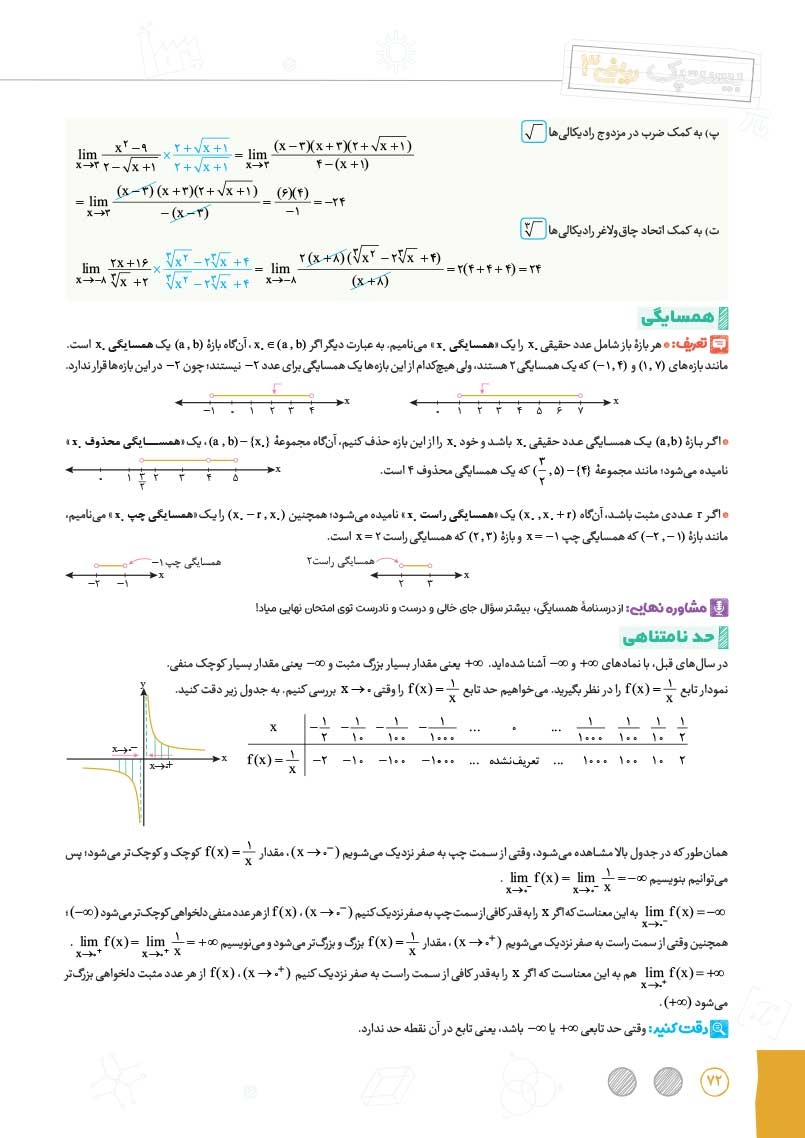 بیست‌پک ریاضی ۳
پ) به کمک ضرب در مزدوج رادیکالی‌ها √
lim x→۳ (x² − ۹)/(۲ − √(x+۱)) × (۲ + √(x+۱))/(۲ + √(x+۱)) = lim x→۳ (x−۳)(x+۳)(۲+√(x+۱))/(۴ − (x+۱))
= lim x→۳ (x−۳)(x+۳)(۲+√(x+۱))/(−(x−۳)) = (۶)(۴)/−۱ = −۲۴
ت) به کمک اتحاد چاق‌ولاغر رادیکالی‌ها ∛
lim x→−۸ (۲x+۱۶)/(∛x + ۲) × (∛x² − ۲∛x + ۴)/(∛x² − ۲∛x + ۴) = lim x→−۸ ۲(x+۸)(∛x² − ۲∛x + ۴)/(x+۸) = ۲(۴+۴+۴) = ۲۴
همسایگی
تعریف: هر بازهٔ باز شامل عدد حقیقی x. را یک «همسایگی x.» می‌نامیم. به عبارت دیگر اگر x. ∈ (a , b)، آن‌گاه بازهٔ (a , b) یک همسایگی x. است.
مانند بازه‌های (۱, ۷) و (−۱, ۴) که یک همسایگی ۲ هستند، ولی هیچ‌کدام از این بازه‌ها یک همسایگی برای عدد −۲ نیستند؛ چون −۲ در این بازه‌ها قرار ندارد.
−۱ ۰ ۱ ۲ ۳ ۴ x
۰ ۱ ۲ ۳ ۴ ۵ ۶ ۷ x
اگر بازهٔ (a,b) یک همسایگی عدد حقیقی x. باشد و خود x. را از این بازه حذف کنیم، آن‌گاه مجموعهٔ (a , b) − {x.}، یک «همسایگی محذوف x.»
نامیده می‌شود؛ مانند مجموعهٔ (۳/۲ , ۵) − {۴} که یک همسایگی محذوف ۴ است.
۰ ۱ ۳/۲ ۲ ۳ ۴ ۵ x
اگر r عددی مثبت باشد، آن‌گاه (x. , x. + r) یک «همسایگی راست x.» نامیده می‌شود؛ همچنین (x. − r , x.) را یک «همسایگی چپ x.» می‌نامیم،
مانند بازهٔ (−۲, −۱) که همسایگی چپ x = −۱ و بازهٔ (۲, ۳) که همسایگی راست x = ۲ است.
همسایگی راست ۲
۲ ۳ x
همسایگی چپ −۱
−۲ −۱ x
مشاوره نهایی: از درسنامهٔ همسایگی، بیشتر سؤال جای خالی و درست و نادرست توی امتحان نهایی میاد!
حد نامتناهی
در سال‌های قبل، با نمادهای +∞ و −∞ آشنا شده‌اید. +∞ یعنی مقدار بسیار بزرگ مثبت و −∞ یعنی مقدار بسیار کوچک منفی.
نمودار تابع f(x) = ۱/x را در نظر بگیرید. می‌خواهیم حد تابع f(x) = ۱/x را وقتی x → ۰ بررسی کنیم. به جدول زیر دقت کنید.
y
x→۰⁻
x→۰⁺
x
x −۱/۲ −۱/۱۰ −۱/۱۰۰ −۱/۱۰۰۰ ... ۰ ... ۱/۱۰۰۰ ۱/۱۰۰ ۱/۱۰ ۱/۲
f(x) = ۱/x −۲ −۱۰ −۱۰۰ −۱۰۰۰ ... تعریف‌نشده ... ۱۰۰۰ ۱۰۰ ۱۰ ۲
همان‌طور که در جدول بالا مشاهده می‌شود، وقتی از سمت چپ به صفر نزدیک می‌شویم (x → ۰⁻)، مقدار f(x) = ۱/x کوچک و کوچک‌تر می‌شود؛ پس
می‌توانیم بنویسیم lim x→۰⁻ f(x) = lim x→۰⁻ ۱/x = −∞ .
lim x→۰⁻ f(x) = −∞ به این معناست که اگر x را به قدر کافی از سمت چپ به صفر نزدیک کنیم (x → ۰⁻)، f(x) از هر عدد منفی دلخواهی کوچک‌تر می‌شود (−∞)؛
همچنین وقتی از سمت راست به صفر نزدیک می‌شویم (x → ۰⁺)، مقدار f(x) = ۱/x بزرگ و بزرگ‌تر می‌شود و می‌نویسیم lim x→۰⁺ f(x) = lim x→۰⁺ ۱/x = +∞ .
lim x→۰⁺ f(x) = +∞ هم به این معناست که اگر x را به‌قدر کافی از سمت راست به صفر نزدیک کنیم (x → ۰⁺)، f(x) از هر عدد مثبت دلخواهی بزرگ‌تر
می‌شود (+∞).
دقت کنید: وقتی حد تابعی +∞ یا −∞ باشد، یعنی تابع در آن نقطه حد ندارد.
۷۲